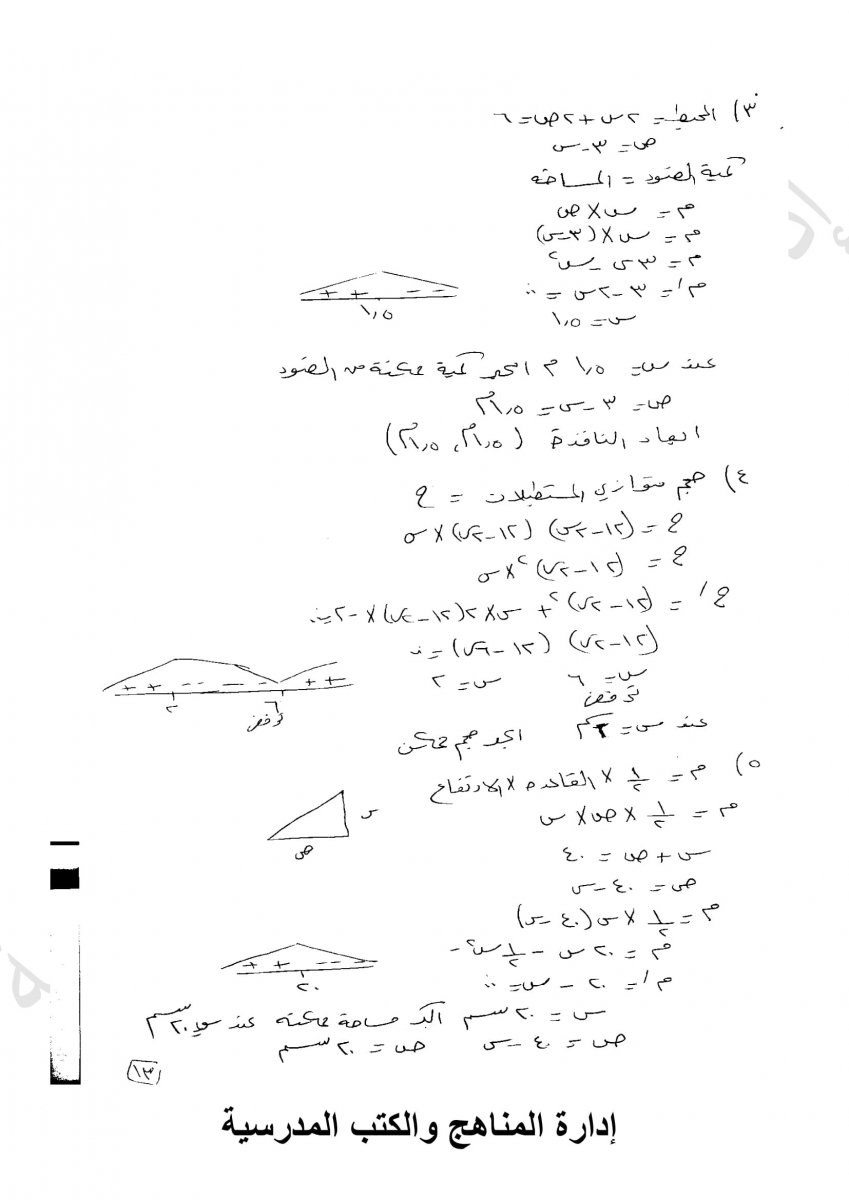 ٣) المحيط = ٢س + ٢ص = ٦
ص = ٣ - س
كمية الضوء = المساحة
م = س × ص
م = س × (٣ - س)
م = ٣س - س٢
م/ = ٣ - ٢س = ٠
+ + - -
س = ١,٥
١,٥
عند س = ١,٥ م اكبر كمية ممكنة من الضوء
ص = ٣ - س = ١,٥ م
ابعاد النافذة (١,٥ م , ١,٥ م)
٤) حجم متوازي المستطيلات = ح
ح = (١٢ - ٢س) (١٢ - ٢س) × س
ح = (١٢ - ٢س)٢ × س
ح/ = (١٢ - ٢س)٢ + س × ٢(١٢ - ٢س) × -٢ = ٠
(١٢ - ٢س) (١٢ - ٦س) = ٠
س = ٦ س = ٢
ترفض
+ + - - - - + +
٢ ٦
ترفض
عند س = ٢ م اكبر حجم ممكن
٥) م = ١/٢ × القاعدة × الارتفاع
م = ١/٢ × ص × س
س
ص
س + ص = ٤٠
ص = ٤٠ - س
م = ١/٢ × س (٤٠ - س)
م = ٢٠ س - ١/٢ س٢
م/ = ٢٠ - س = ٠
+ + - - -
٢٠
س = ٢٠ سم اكبر مساحة ممكنة عند س = ٢٠ سم
ص = ٤٠ - س ص = ٢٠ سم
١٣
إدارة المناهج والكتب المدرسية